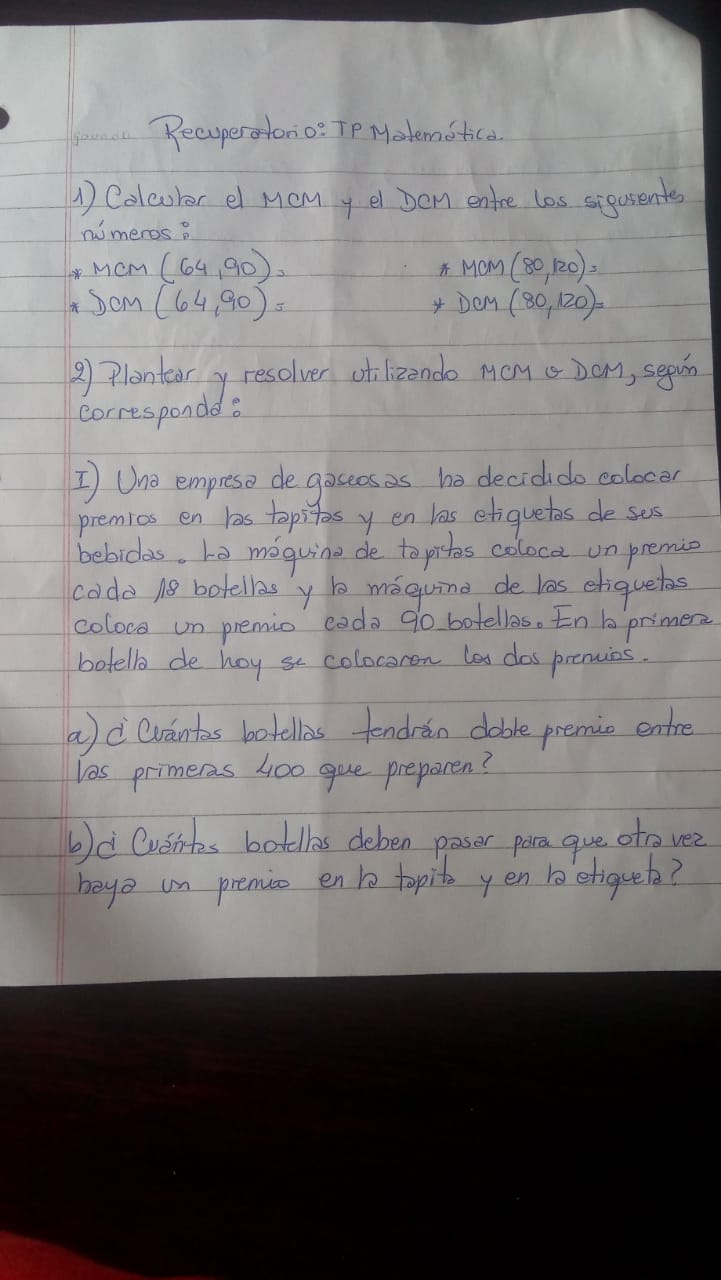 Recuperatorio: TP Matemática.
1) Calcular el MCM y el DCM entre los siguientes
números:
* MCM (64,90)=
* MCM (80,120)=
* DCM (64,90)=
* DCM (80,120)=
2) Plantear y resolver utilizando MCM o DCM, según
corresponda:
I) Una empresa de gaseosas ha decidido colocar
premios en las tapitas y en las etiquetas de sus
bebidas. La máquina de tapitas coloca un premio
cada 18 botellas y la máquina de las etiquetas
coloca un premio cada 90 botellas. En la primera
botella de hoy se colocaron los dos premios.
a) ¿Cuántas botellas tendrán doble premio entre
las primeras 400 que preparen?
b) ¿Cuántas botellas deben pasar para que otra vez
haya un premio en la tapita y en la etiqueta?